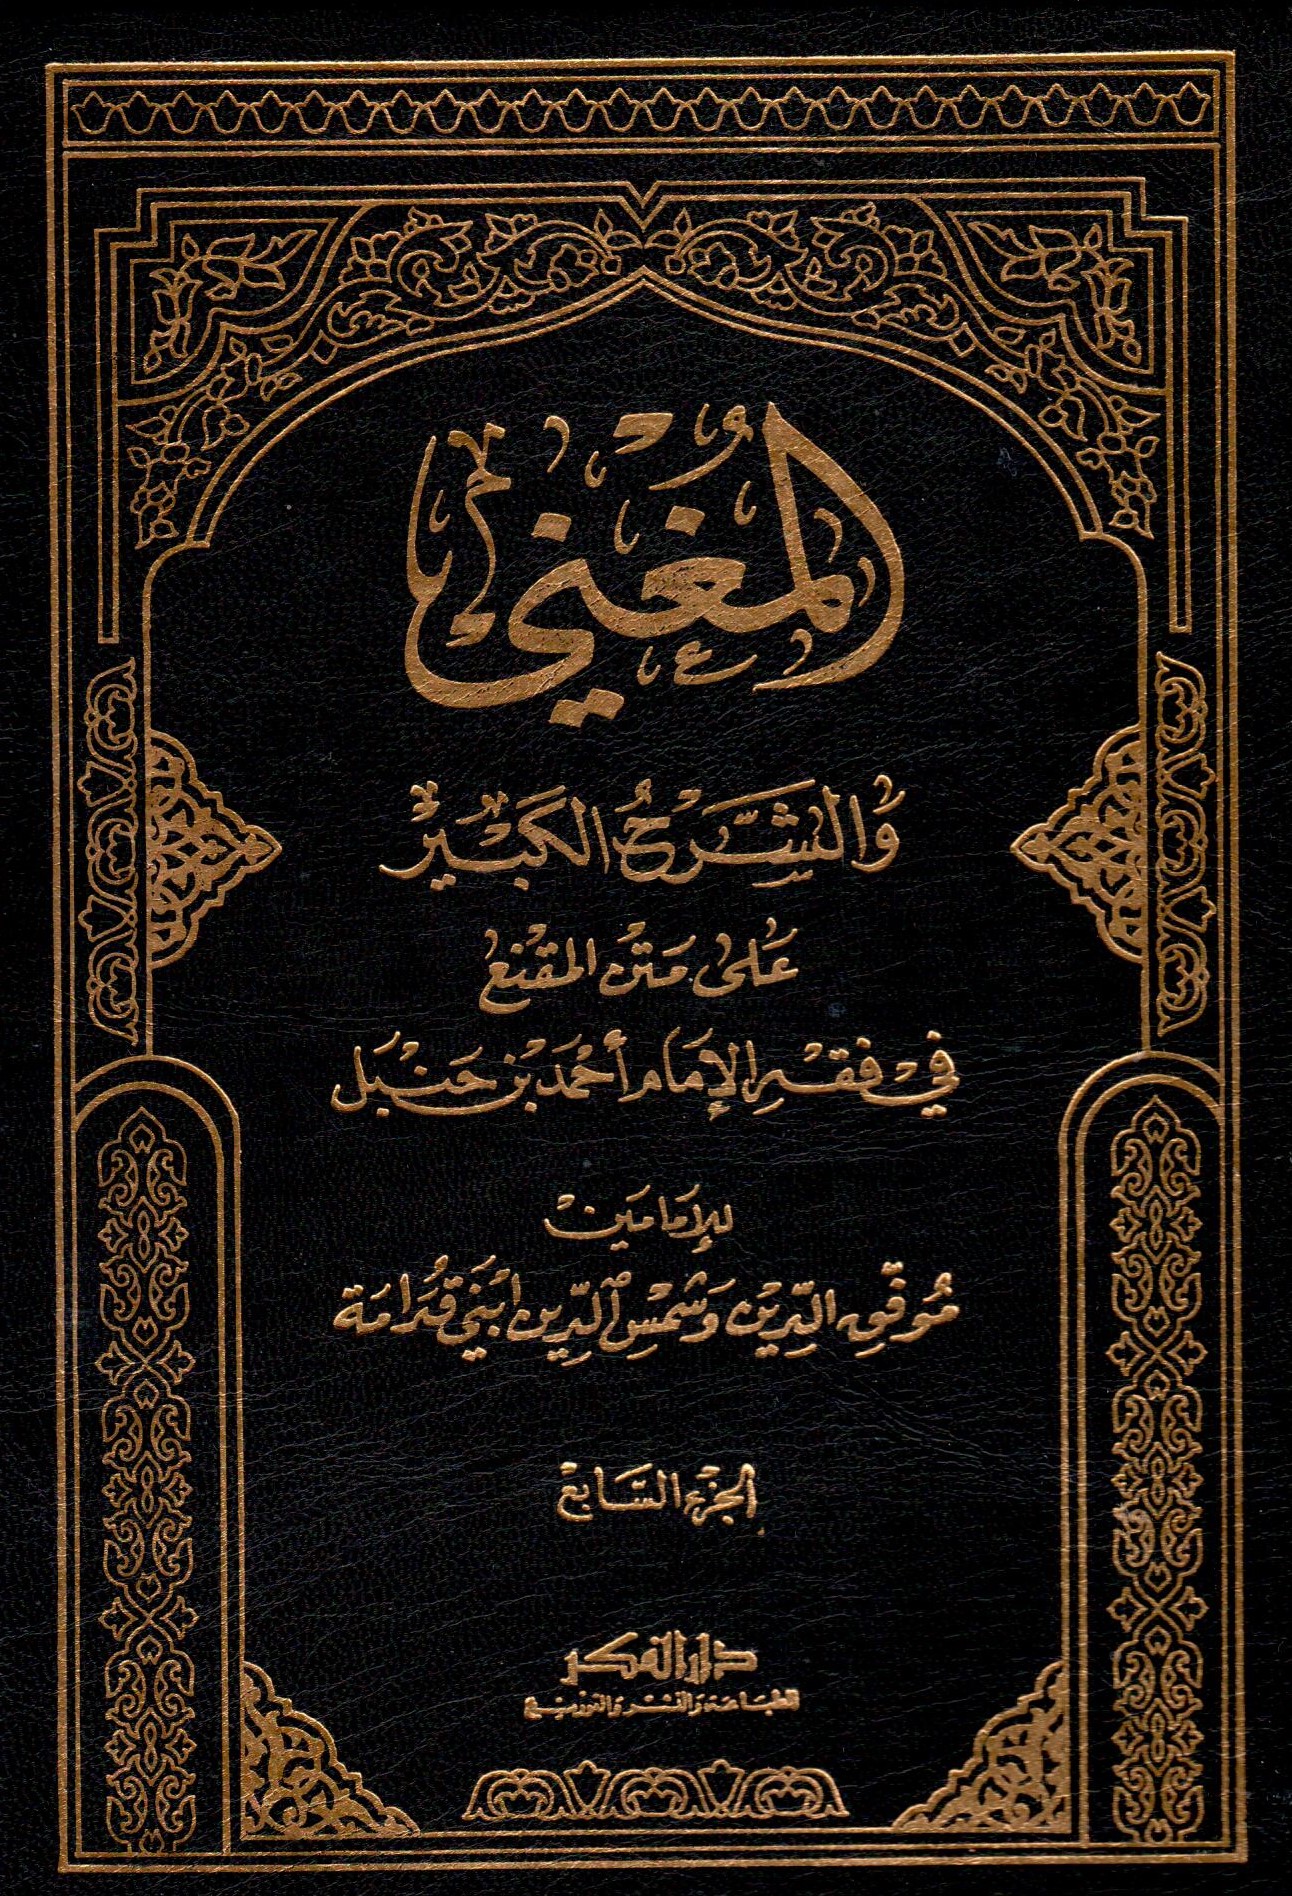 المُغْنِي
وَالشَّرْحُ الكَبْيرْ
عَلى مَتن المقنِع
فيْ فِقْهِ الإمَام أحْمَد بْن حَنبَل
للإمَامَينْ
مُوفّقِ الدِّيْن وَشَمْسِ الدِّين ابْنَيْ قُدَامَة
الجزء السَّابع
دار الفكر
للطباعة والنشر والتوزيع